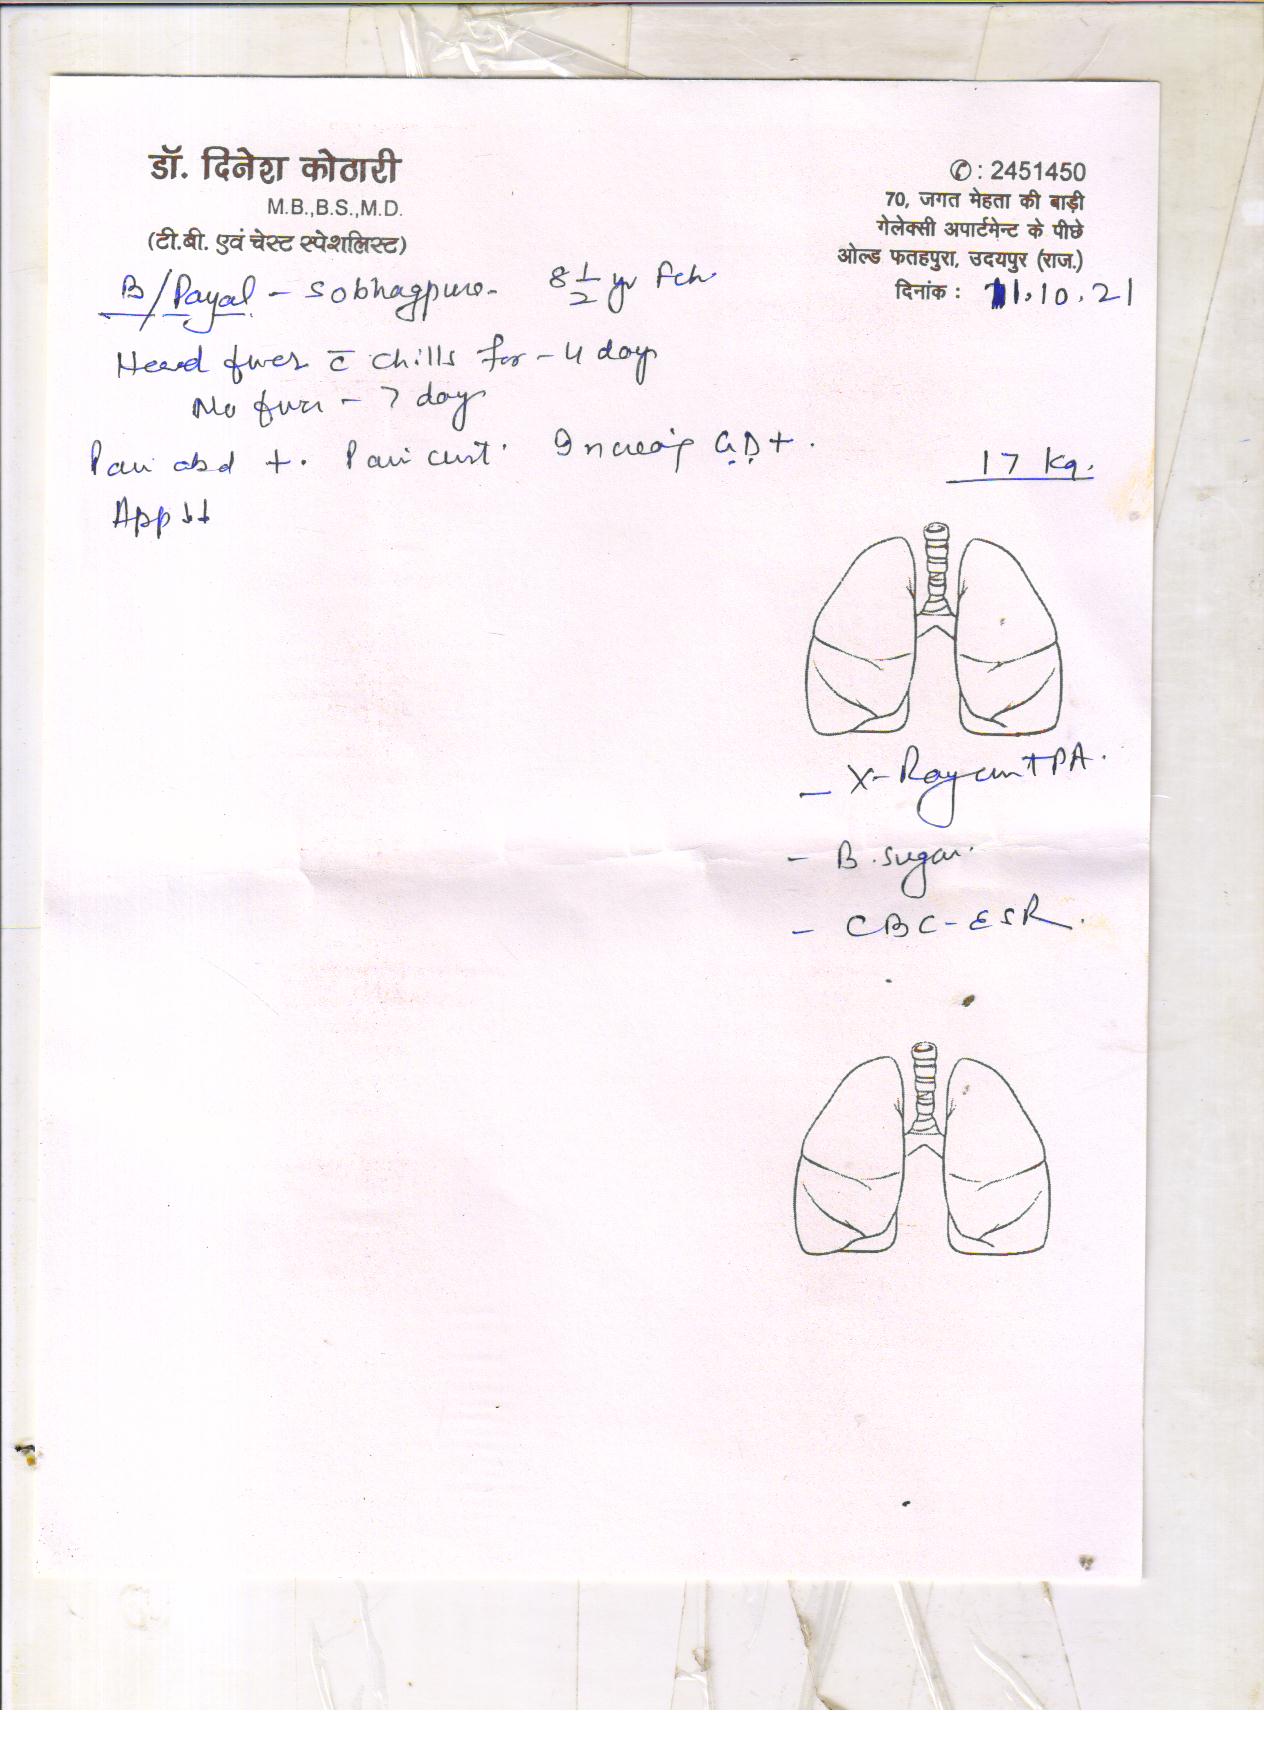 डॉ. दिनेश कोठारी
M.B.,B.S.,M.D.
(टी.बी. एवं चेस्ट स्पेशलिस्ट)
✆ : 2451450
70, जगत मेहता की बाड़ी
गेलेक्सी अपार्टमेन्ट के पीछे
ओल्ड फतहपुरा, उदयपुर (राज.)
दिनांक : 11.10.21
B/Payal - Sobhagpura - 8 1/2 yr Fch
fever c̄ chills for - 4 day
No fever - 7 day
Pain abd +. Pain chest. G.D +.
17 Kg.
App ↓↓
- X-Ray chest PA.
- B. sugar.
- CBC - ESR.